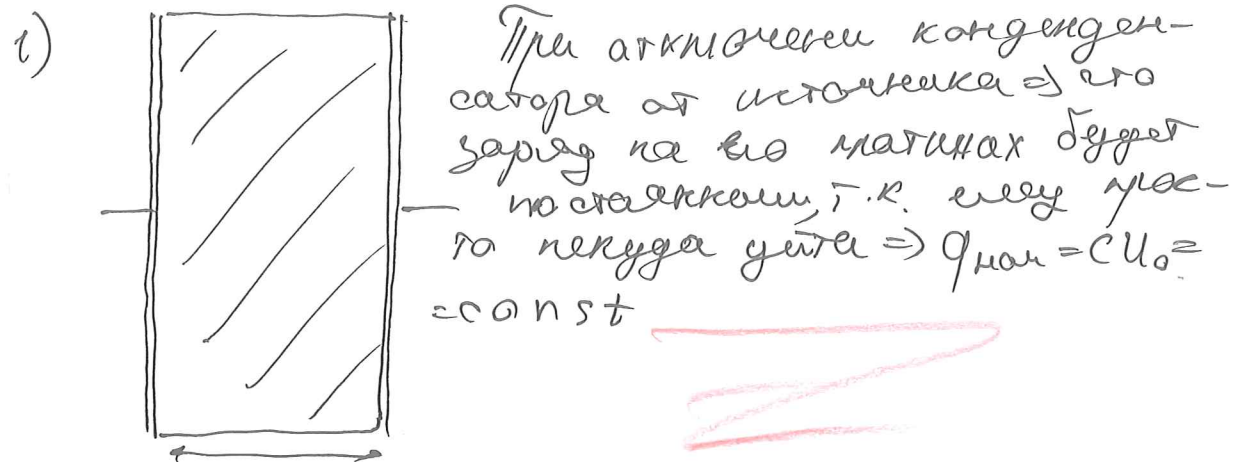 1) При отключении конденден-
сатора от источника => что
заряд на его платинах будет
постоянным, т.к. ему прос-
то некуда уйти => qнач = CU₀ =
= const